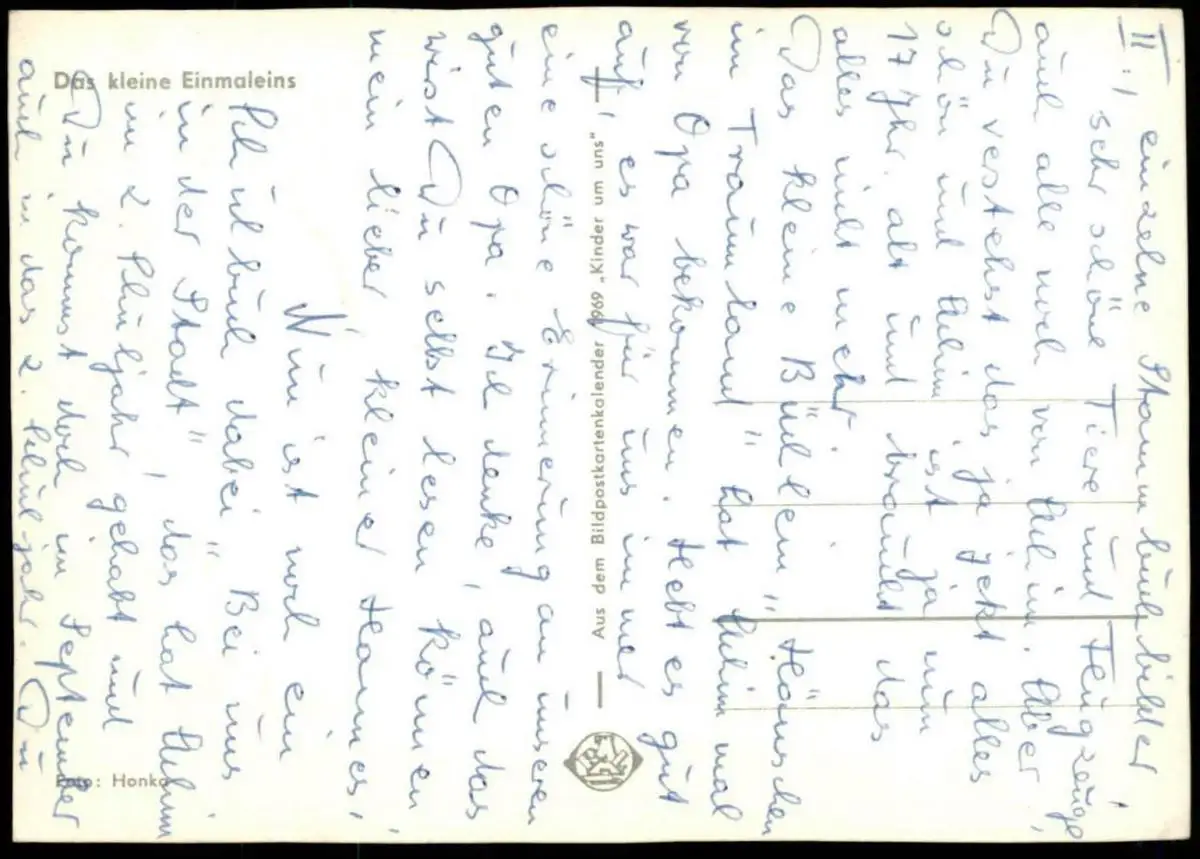 II.) einzelne Stammbuchbilder,
sehr schöne Tiere und Flugzeuge,
auch alle noch von Achim. Aber,
Du verstehst das ja jetzt alles
schön und Achim ist ja nun
17 Jhr. alt und braucht das
alles nicht mehr.
Das kleine Büchlein "Hänschen
im Traumland" hat Achim mal
von Opa bekommen. Hebt es gut
auf, es war für uns immer
eine schöne Erinnerung an unseren
guten Opa. Ich denke, auch das
wirst Du selbst lesen können
mein lieber kleiner Hannes,
Nun ist noch ein
Schulbuch dabei "Bei uns
in der Stadt", das hat Achim
im 2. Schuljahr gehabt und
Du kommst doch im September
auch in das 2. Schuljahr. Du
Das kleine Einmaleins
Foto: Honka
Aus dem Bildpostkartenkalender 1969 „Kinder um uns"